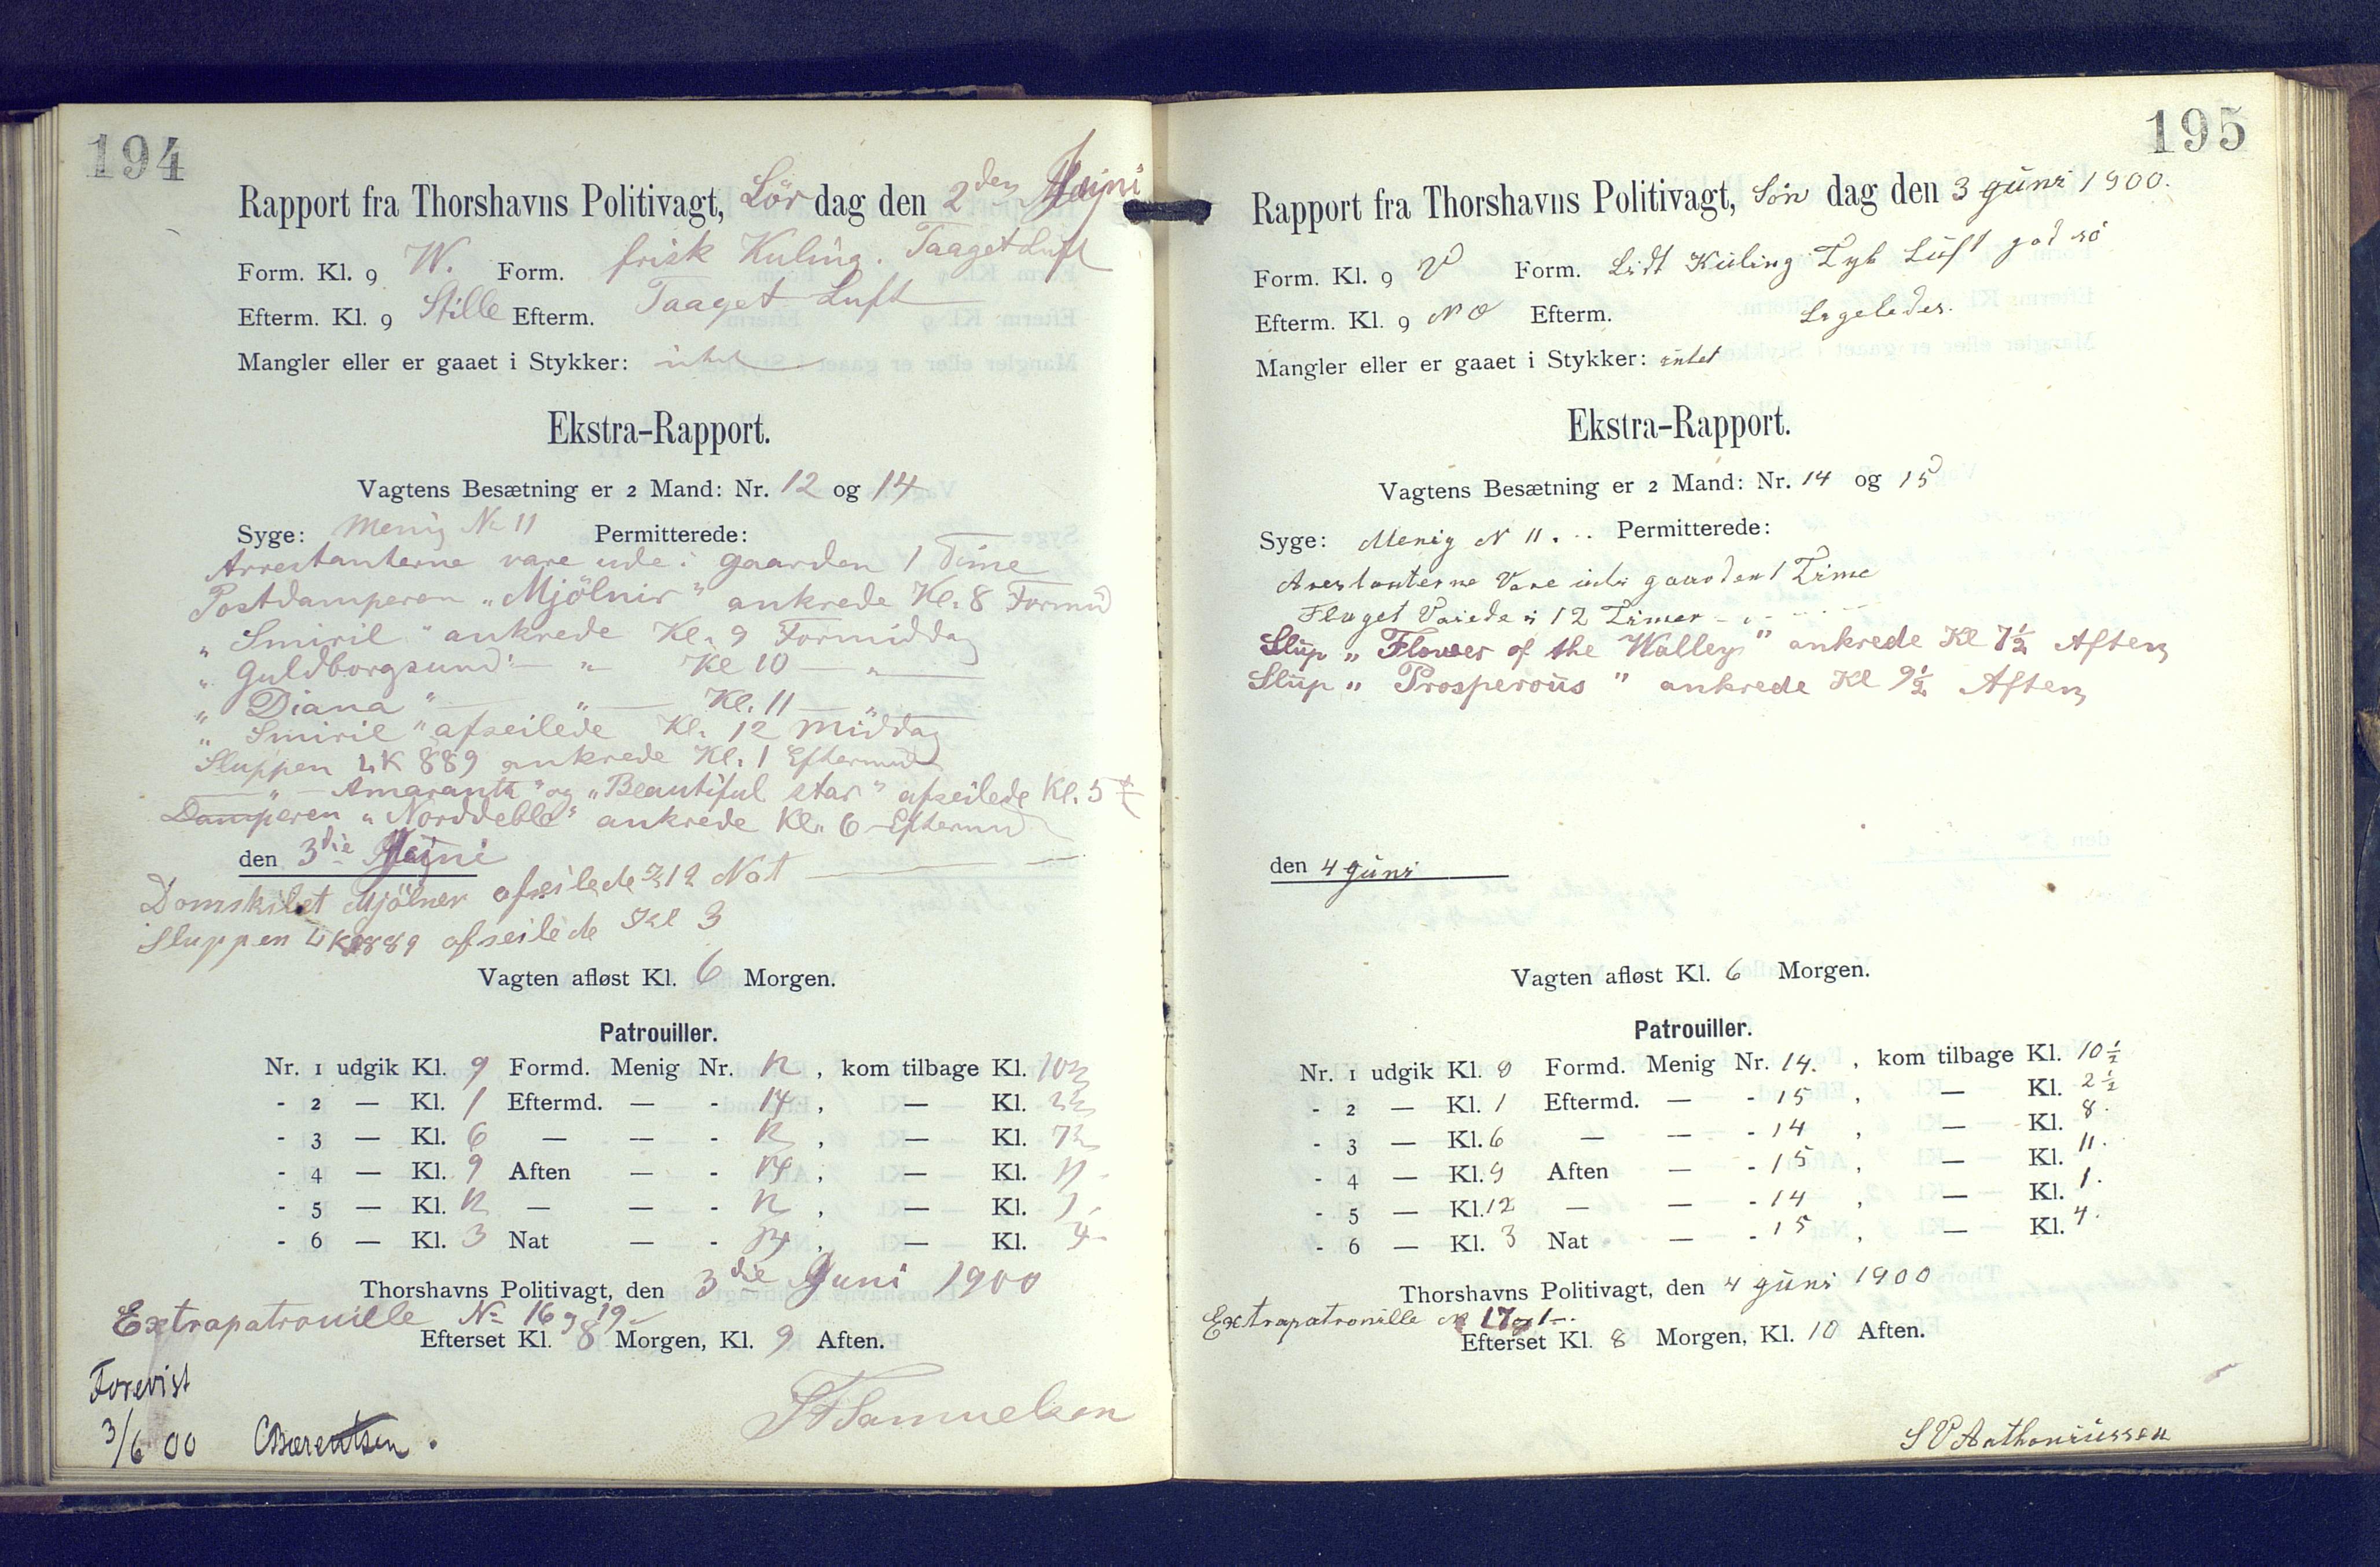 194
Rapport fra Thorshavns Politivagt, Lör dag den 2den Juni
Form. Kl. 9 W. Form. frisk Kuling. Taaget Luft
Efterm. Kl. 9 Stille Efterm. Taaget Luft
Mangler eller er gaaet i Stykker: intet
Ekstra-Rapport.
Vagtens Besætning er 2 Mand: Nr. 12 og 14
Syge: Menig No 11 Permitterede:
Arrestanterne vare ude i gaarden 1 Time
Postdamperen „Mjölnir" ankrede Kl. 8 Formd
„ Smiril " ankrede Kl. 9 Formiddag
„ Guldborgsund" — „ Kl 10 — „ —
„ Diana " — „ — Kl. 11 — „ —
„ Smiril " afseilede Kl. 12 Middag
Sluppen LK 889 ankrede Kl. 1 Eftermd
— „ — Amaranth" og „Beautiful star" afseilede Kl. 5
Damperen „Norddeble" ankrede Kl. 6 Eftermd
den 3die Juni
Domskibet Mjölner afseilede 12 Nat
Sluppen LK 889 afseilede Kl 3
Vagten afløst Kl. 6 Morgen.
Patrouiller.
Nr. 1 udgik Kl. 9 Formd. Menig Nr. 12, kom tilbage Kl. 10½
- 2 — Kl. 1 Eftermd. — - 14, — Kl. 2½
- 3 — Kl. 6 — — - 12, — Kl. 7½
- 4 — Kl. 9 Aften — - 14, — Kl. 11
- 5 — Kl. 12 — — - 12, — Kl. 1
- 6 — Kl. 3 Nat — - 14, — Kl. 4
Thorshavns Politivagt, den 3die Juni 1900
Extrapatrouille No 16 og 19
Efterset Kl. 8 Morgen, Kl. 9 Aften.
Forevist
3/6 00 CBærentsen.
Samuelsen
195
Rapport fra Thorshavns Politivagt, Søn dag den 3 Juni 1900.
Form. Kl. 9 V Form. Lidt Kuling Tyk Luft god sø
Efterm. Kl. 9 NO Efterm. Ligeledes.
Mangler eller er gaaet i Stykker: intet
Ekstra-Rapport.
Vagtens Besætning er 2 Mand: Nr. 14 og 15
Syge: Menig N 11. Permitterede:
Arestanterne Vare ude i gaarden 1 Time
Flaget Vaiede i 12 Timer
Slup „ Flower of the Walley " ankrede Kl 7½ Aften
Slup „ Prosperous " ankrede Kl 9½ Aften
den 4 Juni
Vagten afløst Kl. 6 Morgen.
Patrouiller.
Nr. 1 udgik Kl. 9 Formd. Menig Nr. 14., kom tilbage Kl. 10½
- 2 — Kl. 1 Eftermd. — - 15, — Kl. 2½
- 3 — Kl. 6 — — - 14, — Kl. 8.
- 4 — Kl. 9 Aften — - 15, — Kl. 11.
- 5 — Kl. 12 — — - 14, — Kl. 1.
- 6 — Kl. 3 Nat — - 15, — Kl. 4.
Thorshavns Politivagt, den 4 Juni 1900
Extrapatrouille N 17 og 1
Efterset Kl. 8 Morgen, Kl. 10 Aften.
S V Anthoniussen